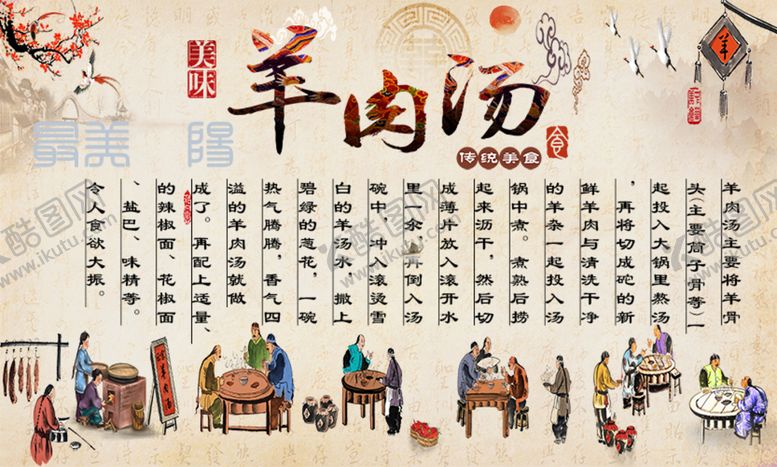 美味
羊肉汤
食
传统美食
羊
最美 阳
羊肉汤主要将羊骨
头(主要筒子骨等)一
起投入大锅里熬汤
,再将切成砣的新
鲜羊肉与清洗干净
的羊杂一起投入汤
锅中煮。煮熟后捞
起来沥干,然后切
成薄片放入滚开水
里一氽,再倒入汤
碗中,冲入滚烫雪
白的羊汤水,撒上
碧绿的葱花,一碗
热气腾腾,香气四
溢的羊肉汤就做
成了。再配上适量、
的辣椒面、花椒面
、盐巴、味精等。
令人食欲大振。
酷图网
www.ikutu.com